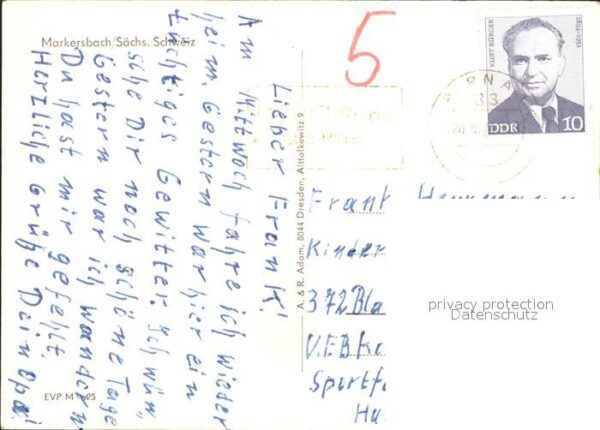 Markersbach/Sächs. Schweiz
Lieber Frank!
Am Mittwoch fahre ich wieder
heim. Gestern war hier ein
tüchtiges Gewitter. Ich wün-
sche Dir noch schöne Tage
Gestern war ich wandern
Du hast mir gefehlt.
Herzliche Grüße Dein Opa!
EVP M 0,25
A. & R. Adam, 8044 Dresden, Alttolkewitz 9
5
KURT BÜRGER
1894-1951
DDR 10
Frank
Kinder
372 Bla
VEB
Sportf
Ha
privacy protection
Datenschutz